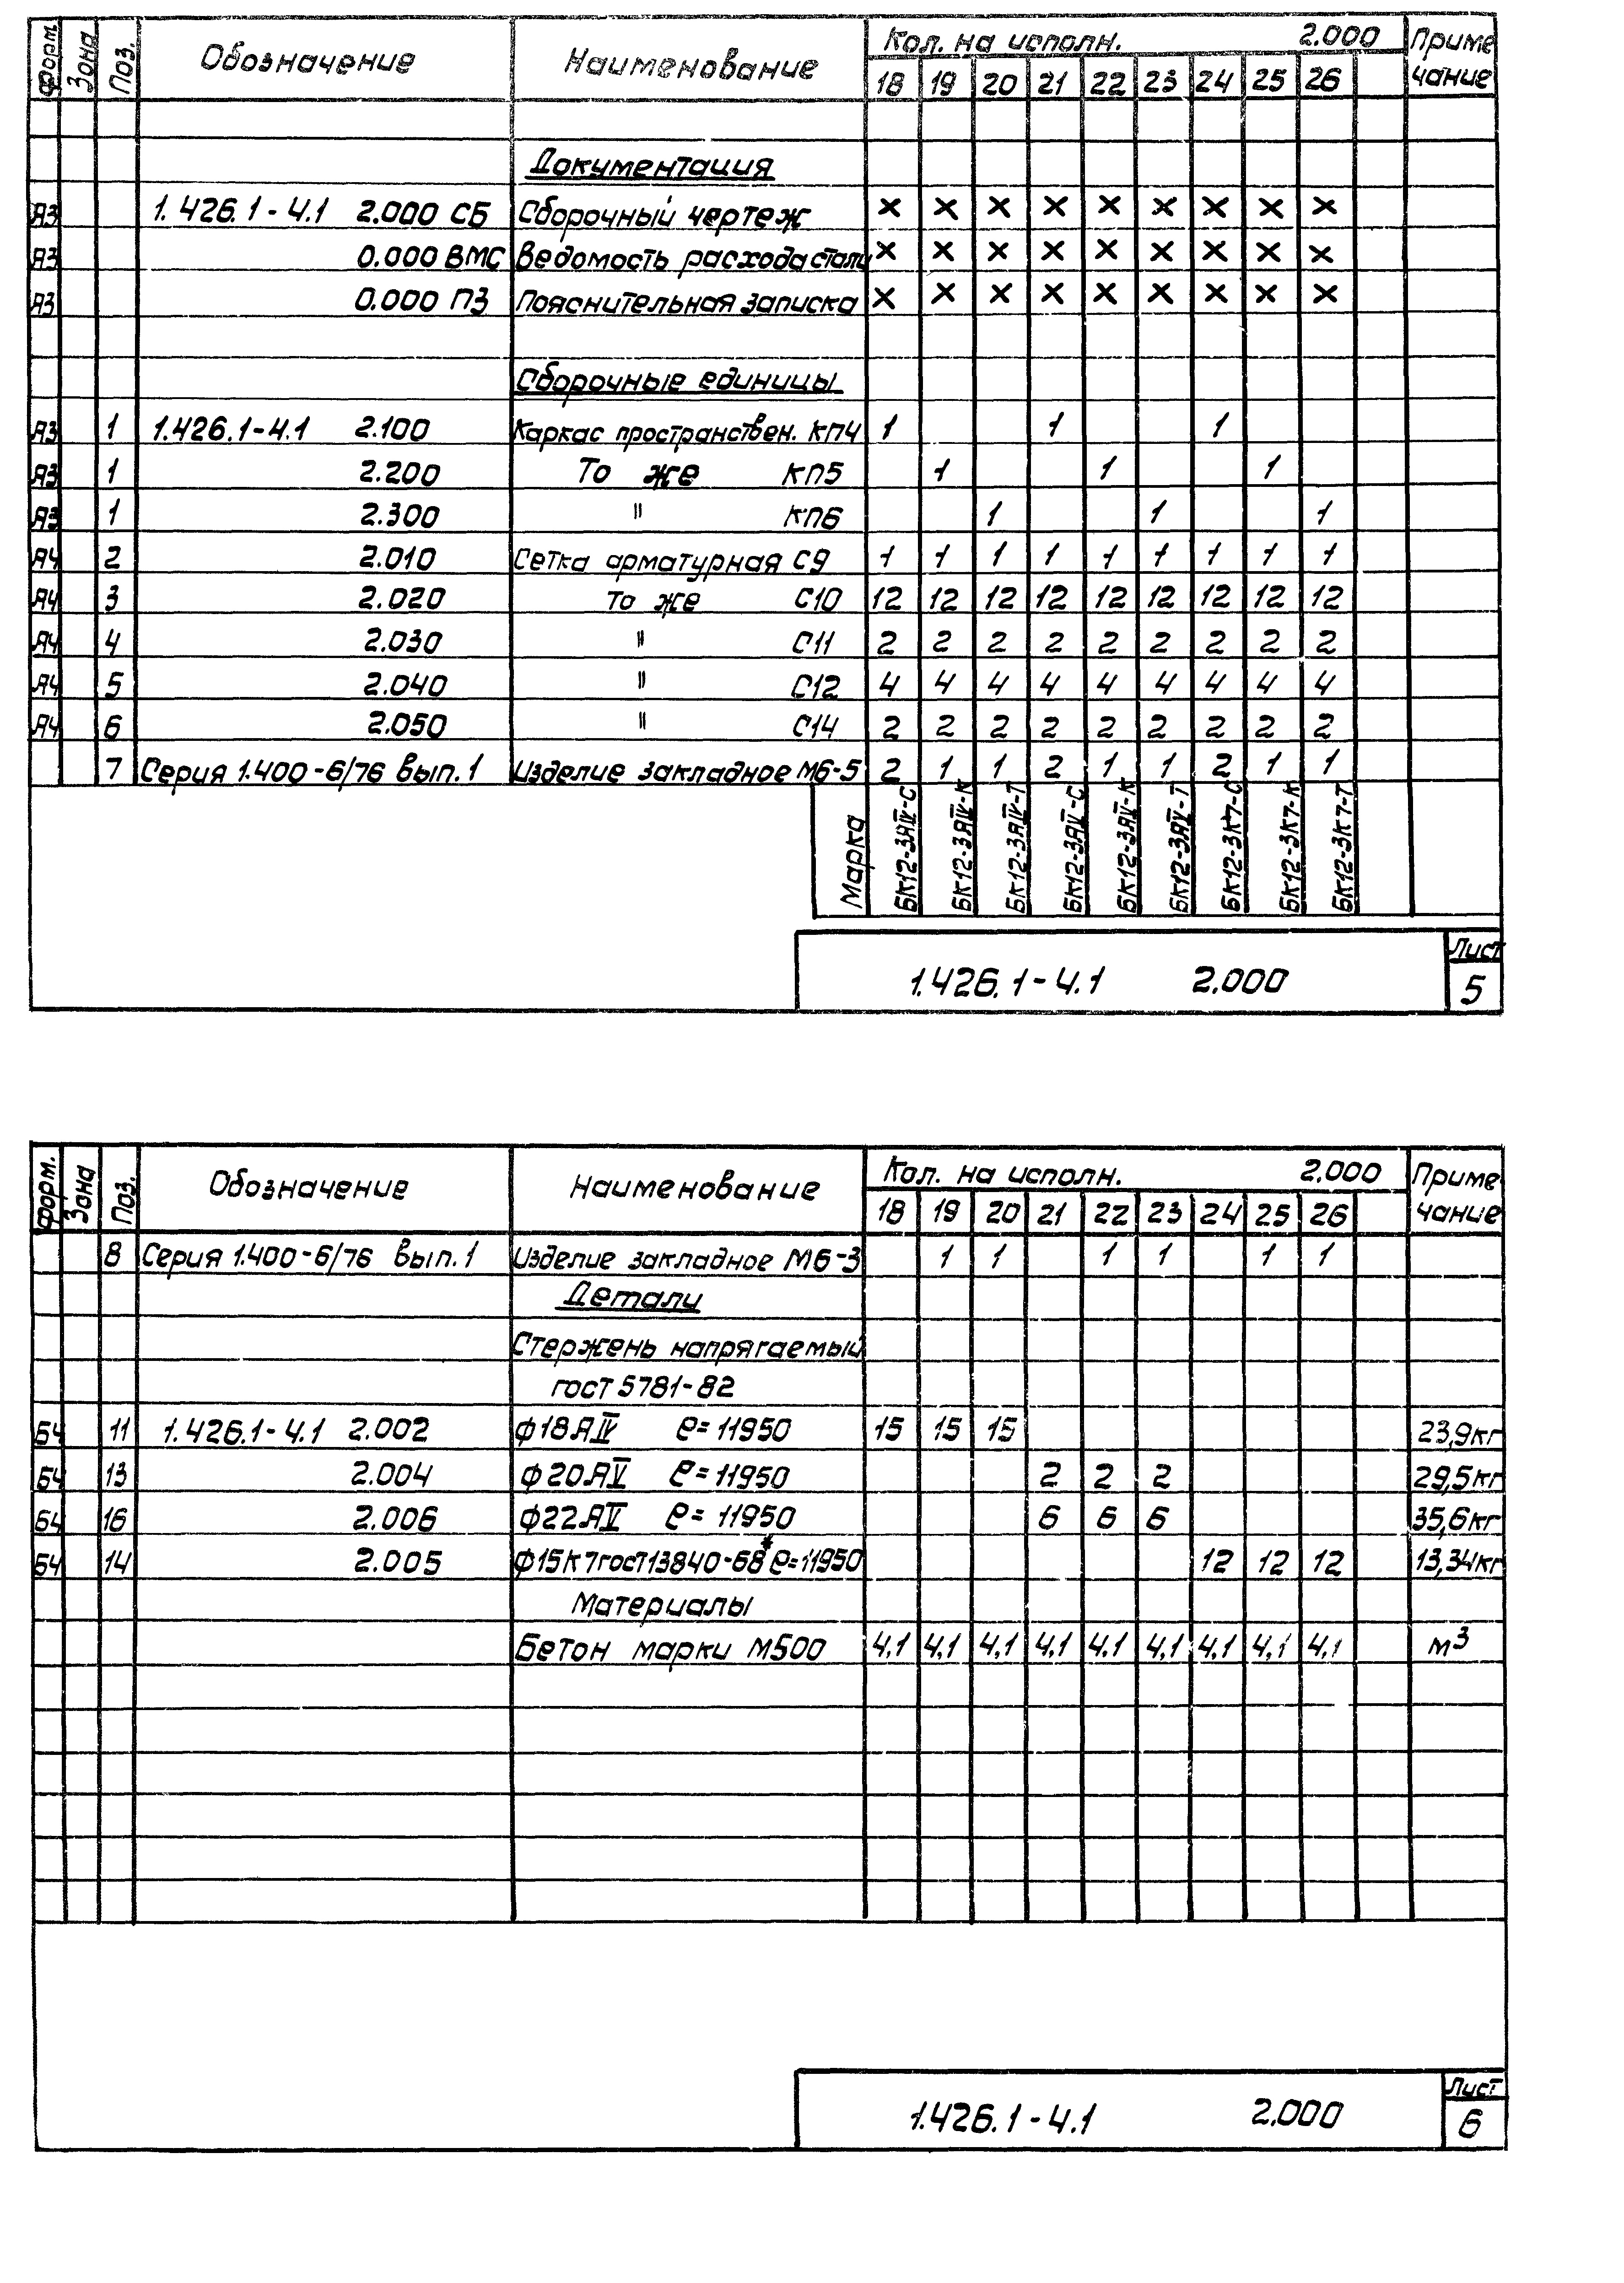 Форм. Зона Поз. Обозначение Наименование Кол. на исполн. 2.000 Приме
18 19 20 21 22 23 24 25 26 чание
Документация
А3 1.426.1-4.1 2.000 СБ Сборочный чертеж × × × × × × × × ×
А3 0.000 ВМС Ведомость расхода стали × × × × × × × × ×
А3 0.000 ПЗ Пояснительная записка × × × × × × × × ×
Сборочные единицы
А3 1 1.426.1-4.1 2.100 Каркас пространствен. КП4 1 1 1
А3 1 2.200 То же КП5 1 1 1
А3 1 2.300 " КП6 1 1 1
А4 2 2.010 Сетка арматурная С9 1 1 1 1 1 1 1 1 1
А4 3 2.020 То же С10 12 12 12 12 12 12 12 12 12
А4 4 2.030 " С11 2 2 2 2 2 2 2 2 2
А4 5 2.040 " С12 4 4 4 4 4 4 4 4 4
А4 6 2.050 " С14 2 2 2 2 2 2 2 2 2
7 Серия 1.400-6/76 вып.1 Изделие закладное М6-5 2 1 1 2 1 1 2 1 1
Марка БК12-3АIV-С БК12-3АIV-К БК12-3АIV-Т БК12-3АV-С БК12-3АV-К БК12-3АV-Т БК12-3К7-С БК12-3К7-К БК12-3К7-Т
1.426.1-4.1 2.000 Лист
5
Форм. Зона Поз. Обозначение Наименование Кол. на исполн. 2.000 Приме
18 19 20 21 22 23 24 25 26 чание
8 Серия 1.400-6/76 вып.1 Изделие закладное М6-3 1 1 1 1 1 1
Детали
Стержень напрягаемый
гост 5781-82
Б4 11 1.426.1-4.1 2.002 Ф18АIV ℓ=11950 15 15 15 23,9кг
Б4 13 2.004 Ф20АV ℓ=11950 2 2 2 29,5кг
Б4 16 2.006 Ф22АV ℓ=11950 6 6 6 35,6кг
Б4 14 2.005 Ф15К7гост13840-68* ℓ=11950 12 12 12 13,34кг
Материалы
Бетон марки М500 4,1 4,1 4,1 4,1 4,1 4,1 4,1 4,1 4,1 м³
1.426.1-4.1 2.000 Лист
6